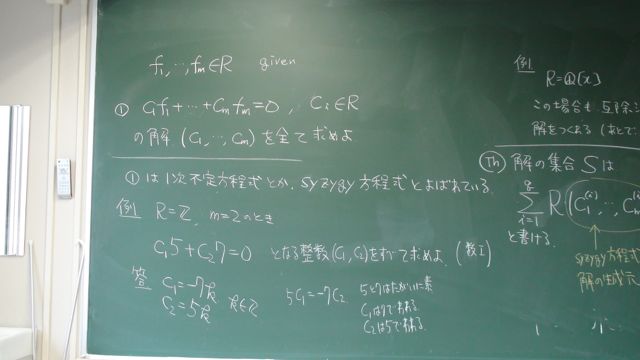 f₁, ⋯, fₘ ∈ R given
① c₁f₁ + ⋯ + cₘfₘ = 0 , cᵢ ∈ R
の解 (c₁, ⋯, cₘ) を全て求めよ
①は1次不定方程式とか、syzygy方程式とよばれている.
例 R = ℤ, m = 2 のとき
c₁5 + c₂7 = 0 となる整数(c₁, c₂)をすべて求めよ. (数I)
答 c₁ = -7k
c₂ = 5k k ∈ ℤ
5c₁ = -7c₂ 5と7はたがいに素
c₁は7でわれる
c₂は5でわれる
例 R = ℚ[x]
この場合も互除
解をつくれる (あとで
Th 解の集合 S は
∑ᵢ₌₁ R (c₁⁽ⁱ⁾, ⋯, cₘ
と書ける.
syzygy方程式
解の生成元